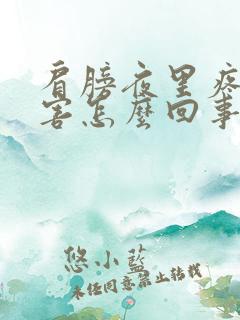 肩膀夜里疼
害怎麼回事
悠小藍
未经同意禁止转载